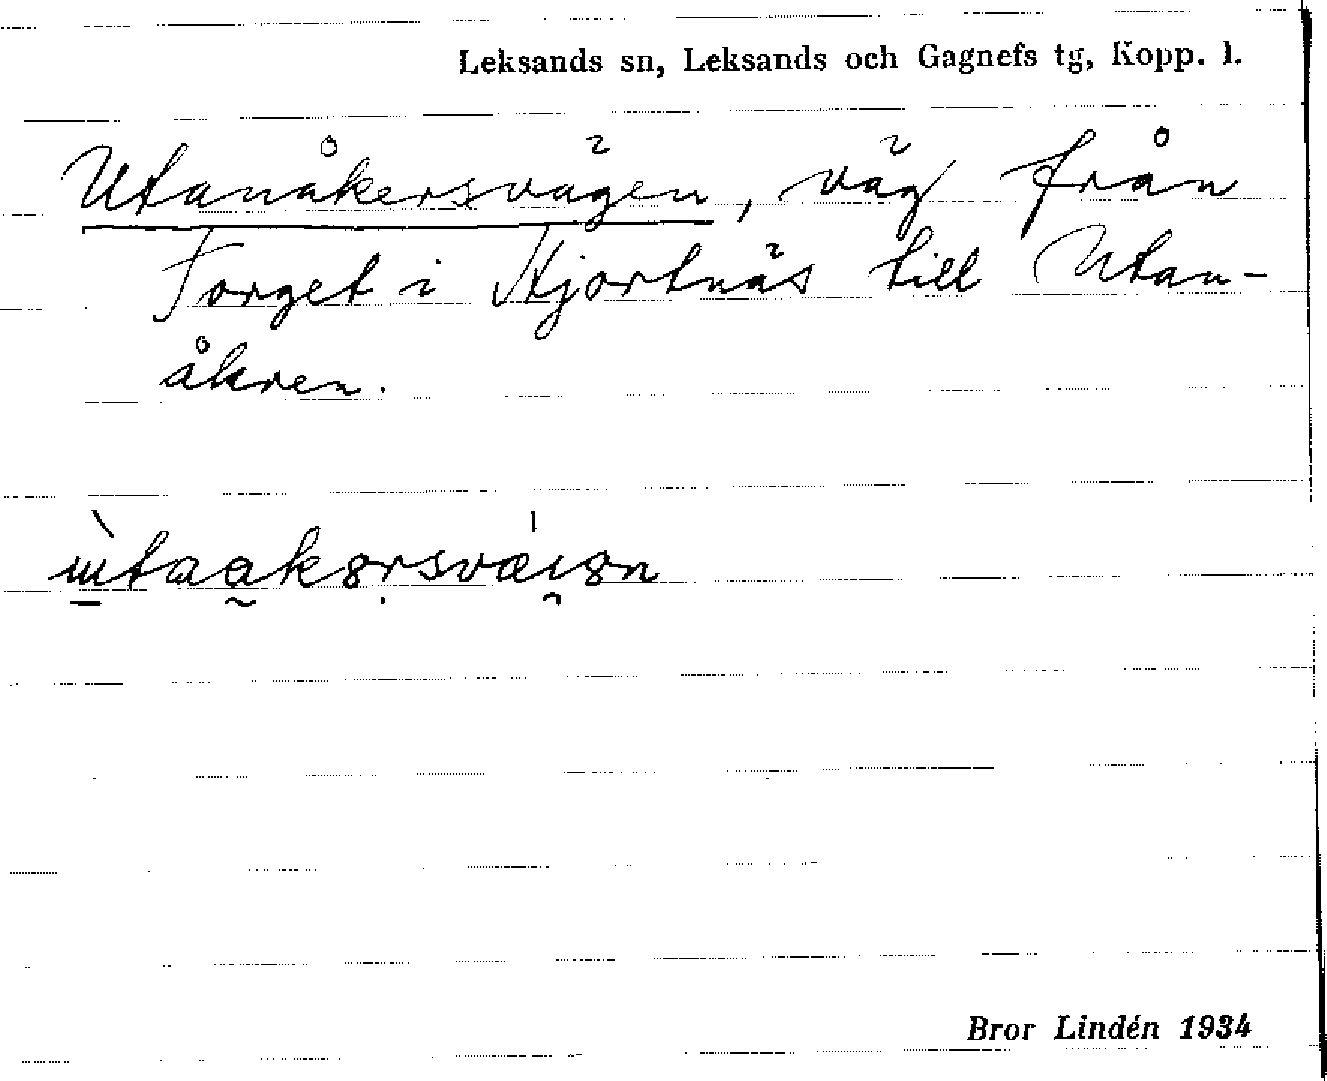 Leksands sn, Leksands och Gagnefs tg, Kopp. l.
Utanåkersvägen, väg från
Torget i Hjortnäs till Utan-
åkren.
Bror Lindén 1934